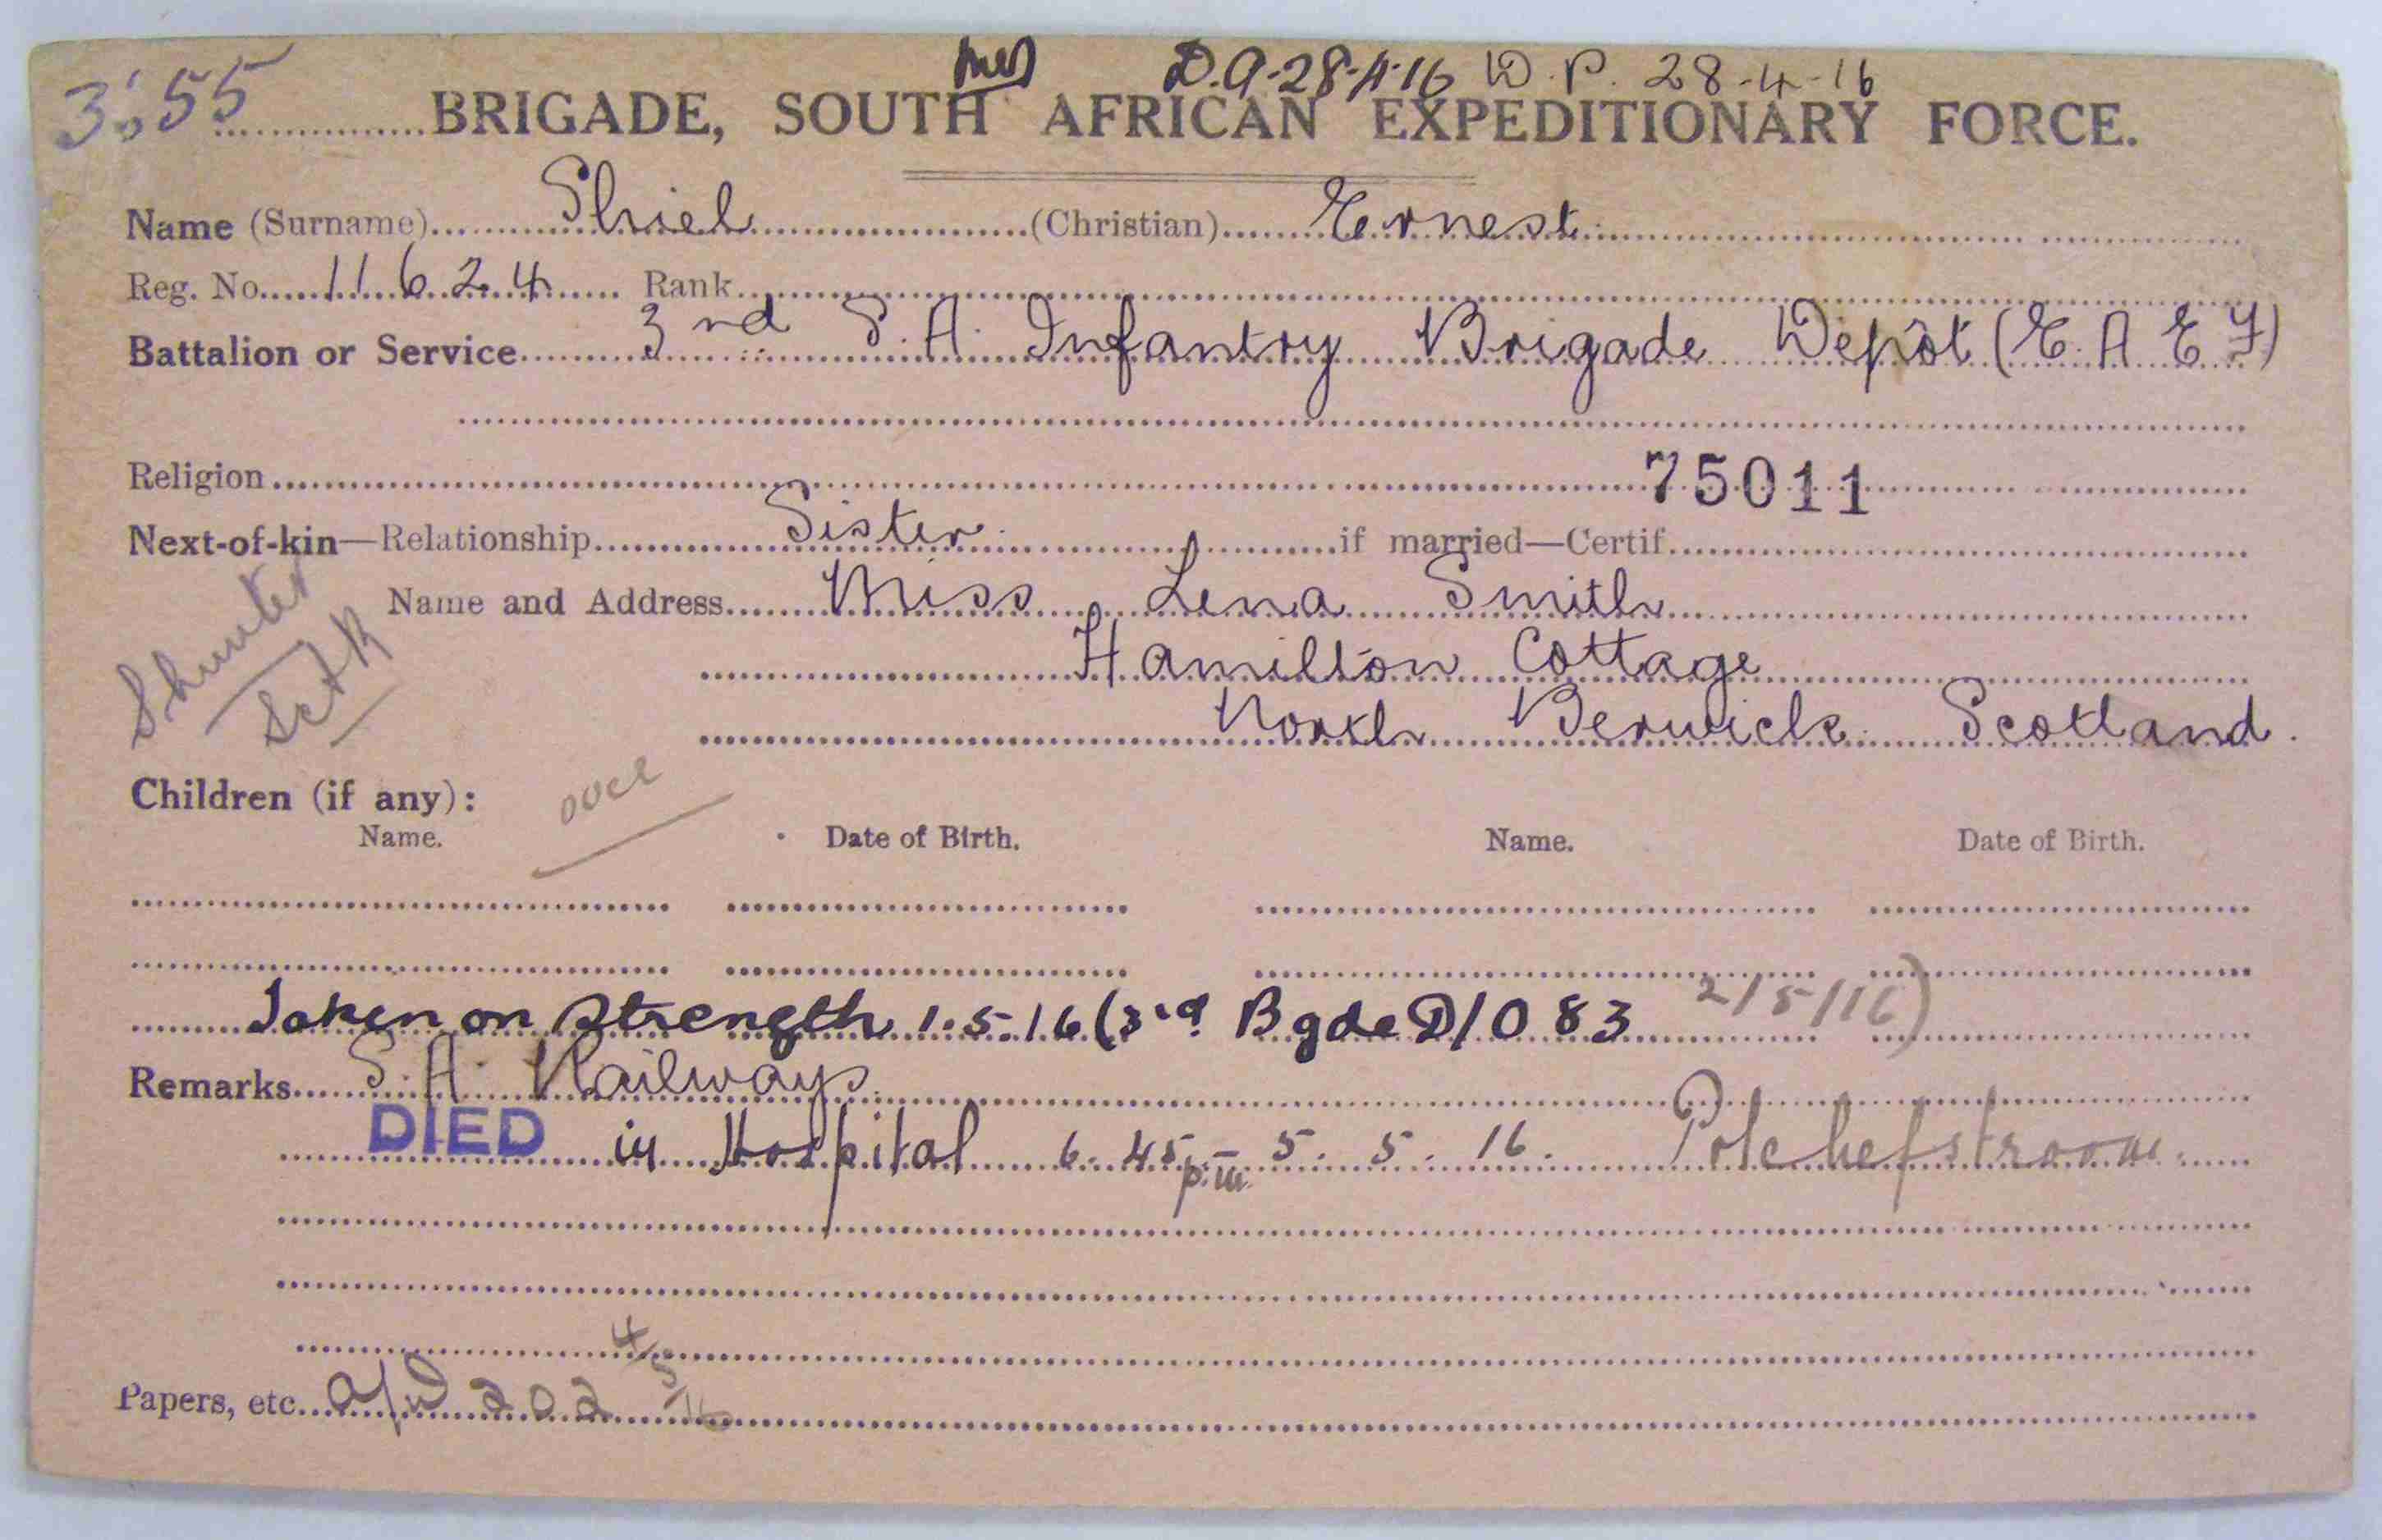 D.A-28-4-16 D.P. 28-4-16
3:55 BRIGADE, SOUTH AFRICAN EXPEDITIONARY FORCE.
Name (Surname) Shiel (Christian) Ernest
Reg. No. 11624 Rank
Battalion or Service 3rd S.A. Infantry Brigade Depôt (E.A.E.F)
Religion 75011
Next-of-kin—Relationship Sister if married—Certif.
Name and Address Miss Lena Smith
Hamilton Cottage
North Berwick Scotland.
Shunter
SAR
Children (if any):
over
Name. Date of Birth. Name. Date of Birth.
Taken on Strength 1.5.16 (3rd Bgde D/O 83 2/5/16)
Remarks S.A. Railways
DIED in Hospital 6.45 p.m 5.5.16. Potchefstroom.
Papers, etc. 202 4/5/16